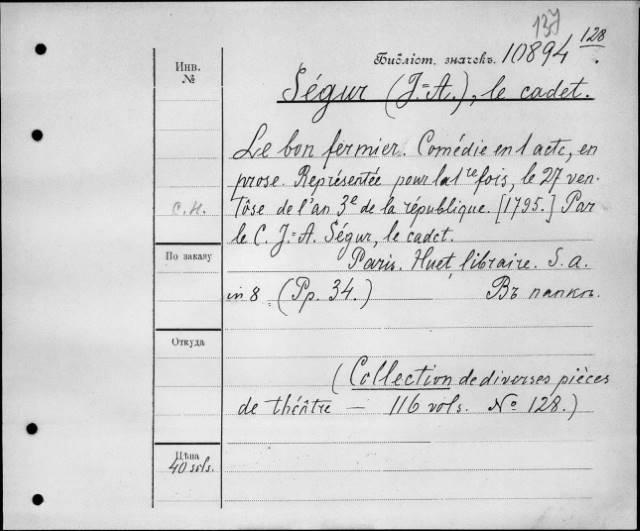 137
Инв. №
Библіот. значекъ. 10894 128.
Ségur (J.=A.), le cadet.
Le bon fermier. Comédie en 1 acte, en
prose. Représentée pour la 1re fois, le 27 ven-
tôse de l'an 3e de la république. [1795.] Par
С. Н.
le C. J.=A. Ségur, le cadet.
По заказу
Paris. Huet, libraire. S. a.
in 8. (Pp. 34.) Въ папкѣ.
Откуда
(Collection de diverses pièces
de théâtre — 116 vols. No 128.)
Цѣна
40 sols.